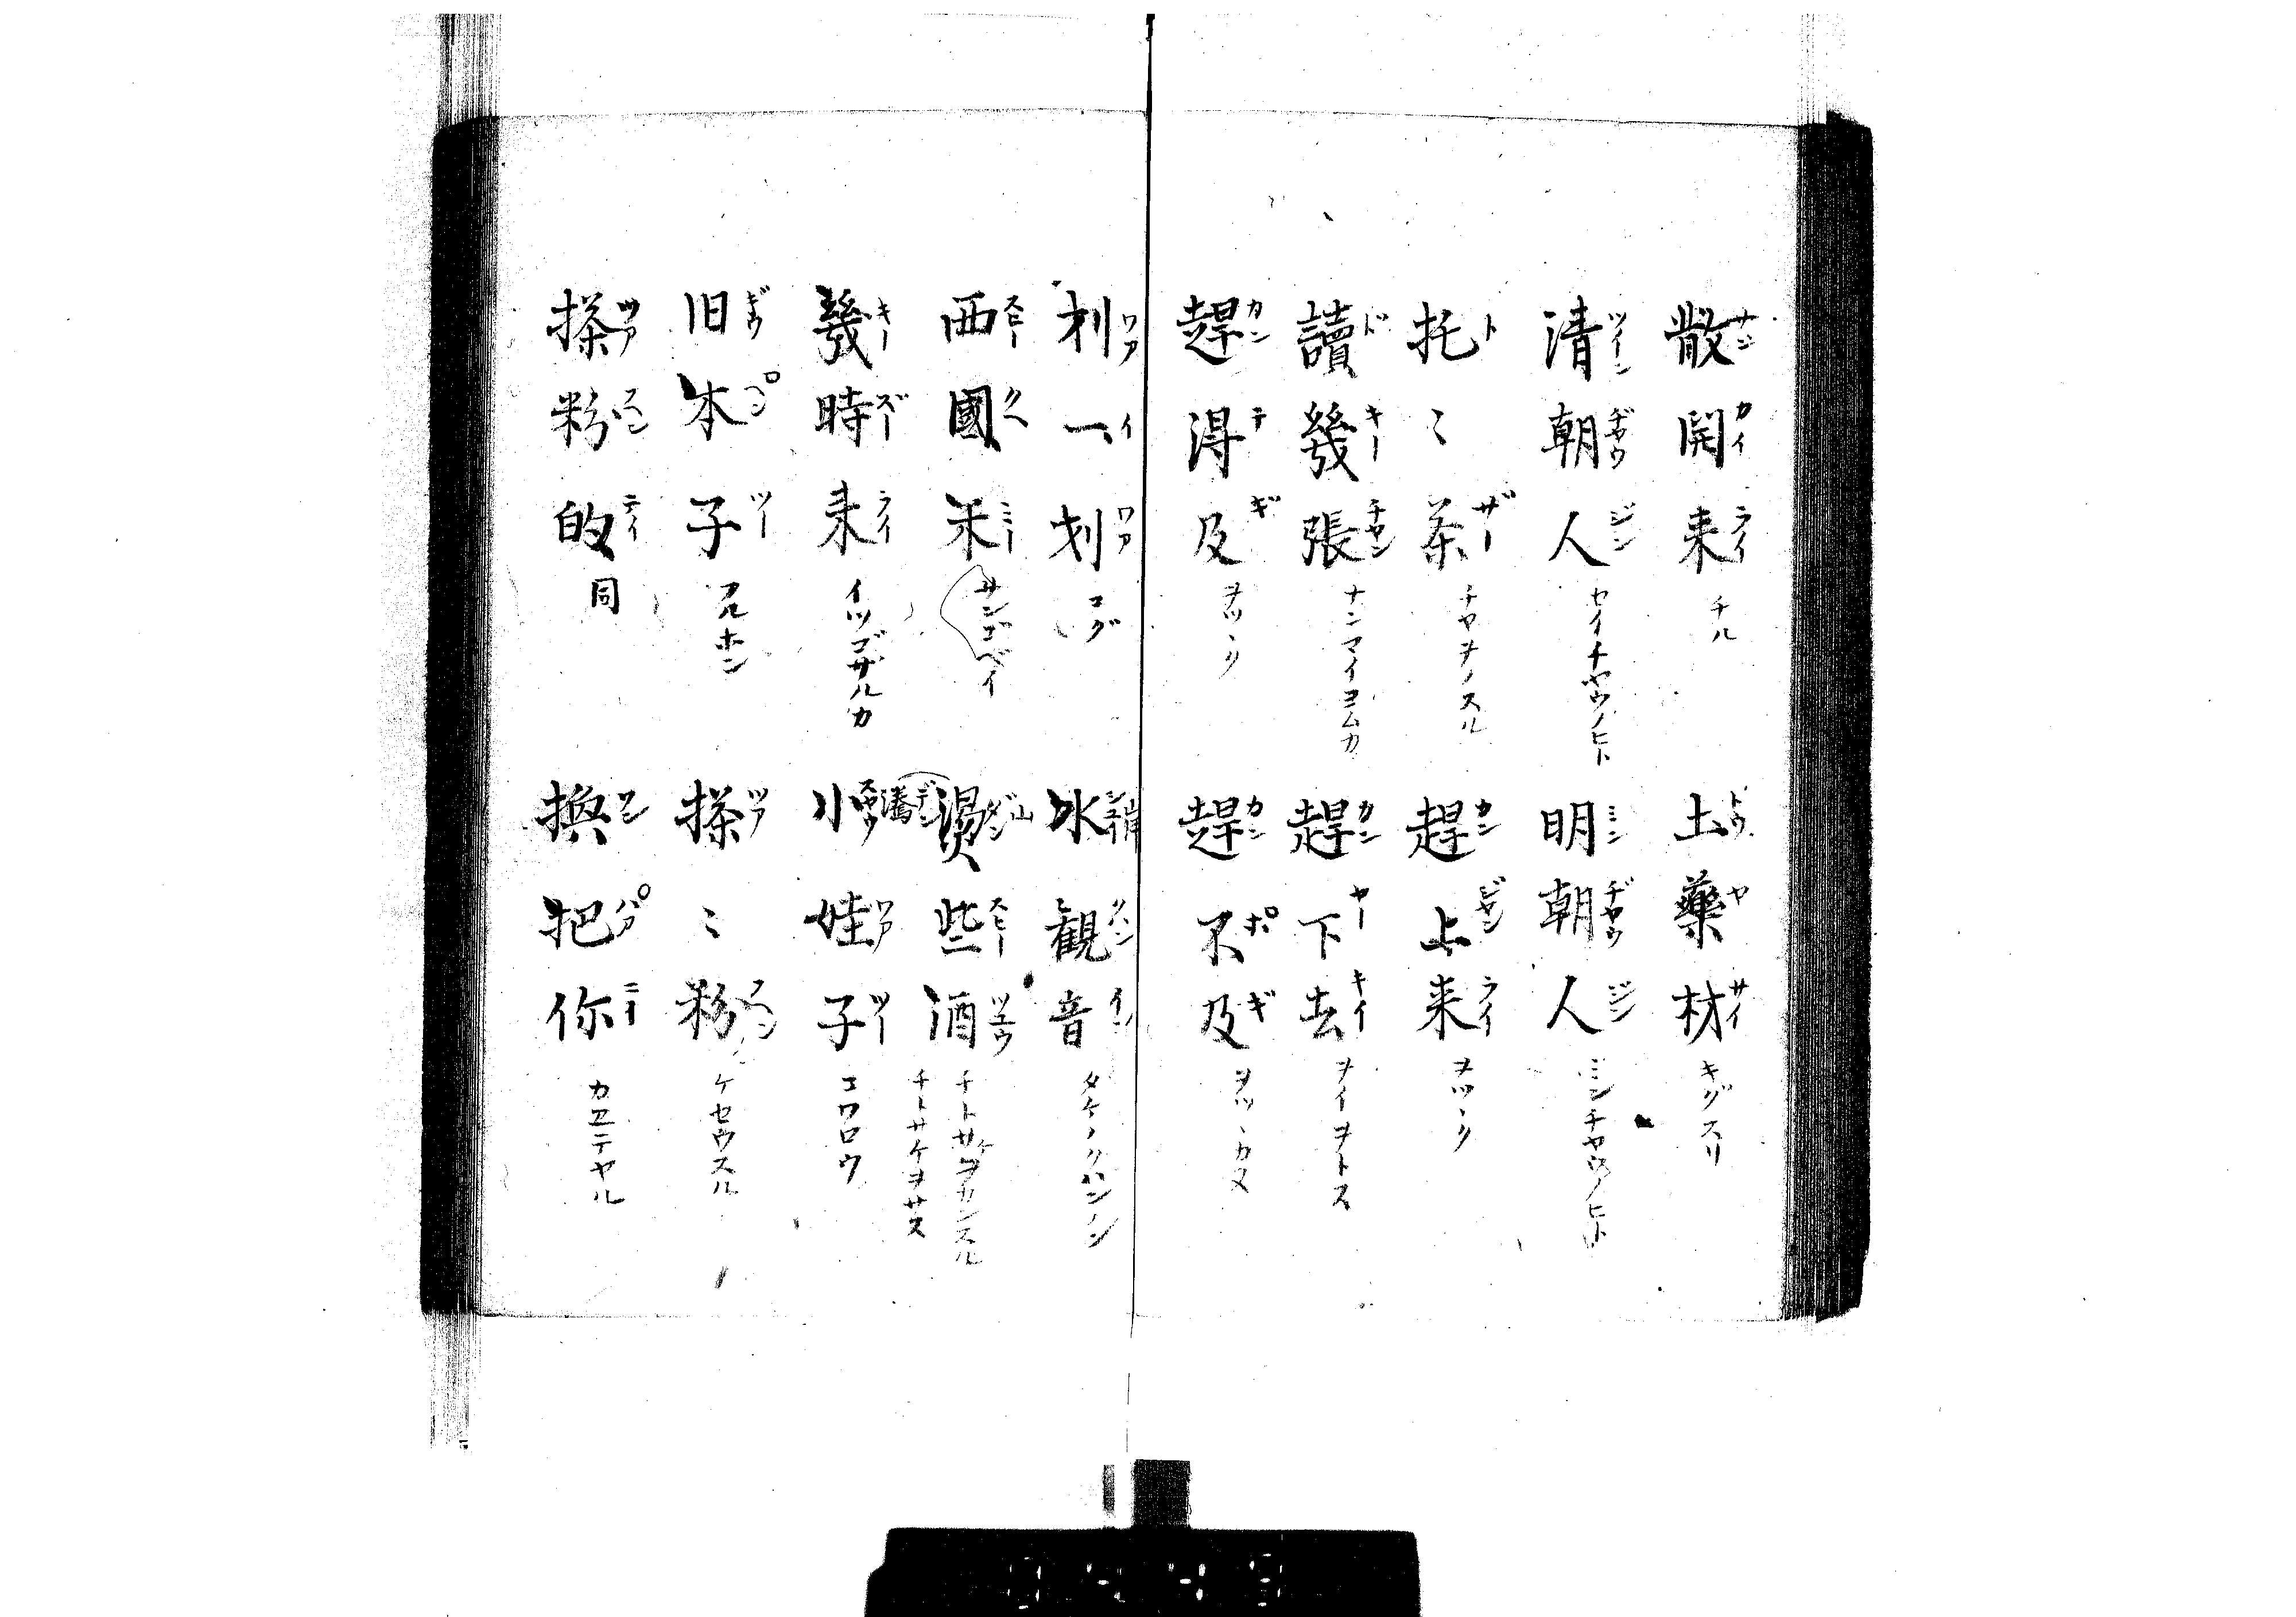 散開来 サンカイライ チル
土藥材 トウヤサイ キグスリ
清朝人 ツイーンヂヤウジン セイチヤウノヒト
明朝人 ミンヂヤウジン ミンチヤウノヒト
托〻茶 トザー チヤヲノスル
趕上来 カンジヤンライ ヲツヽク
讀幾張 ドキーチヤン ナンマイヨムカ
趕下去 カンヤーキイ ヲイヲトス
趕得及 カンテギ ヲツヽク
趕不及 カンポギ ヲツヽカヌ
一划 イワア コグ
水觀音 クハンイン
西國米 スヒークヘミー サンゴベイ
燙些酒 ダンスヒーツユウ チトサケヲカンスル
チトサケヲサス
幾時来 キーズーライ イツゴザルカ
小娃子 スヤウワアツー コワロウ
旧本子 ギウプンツー フルホン
搽〻粉 ツアフン ケセウスル
搽粉的 ツアフンテイ 同
換把你 ワンパアニイ カヱテヤル